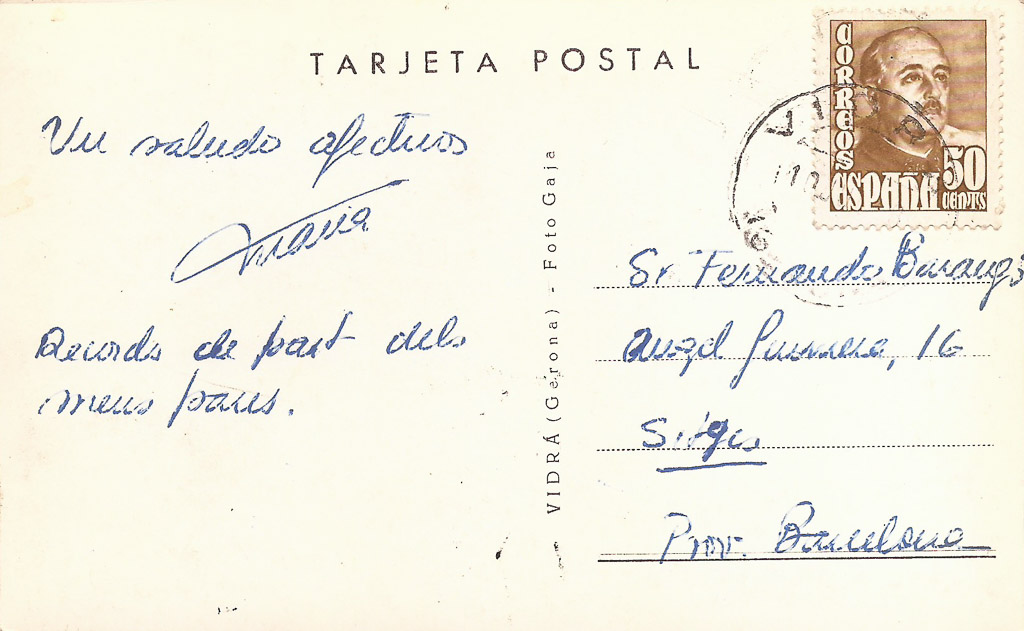 TARJETA POSTAL
CORREOS
ESPAÑA
50
CENTS
Un saludo afectuos
Maria
Records de part dels
meus pares.
VIDRÁ (Gerona) - Foto Gaja
Sr. Fernando
Angel Guimera, 16
Sitges
Prov. Barcelona